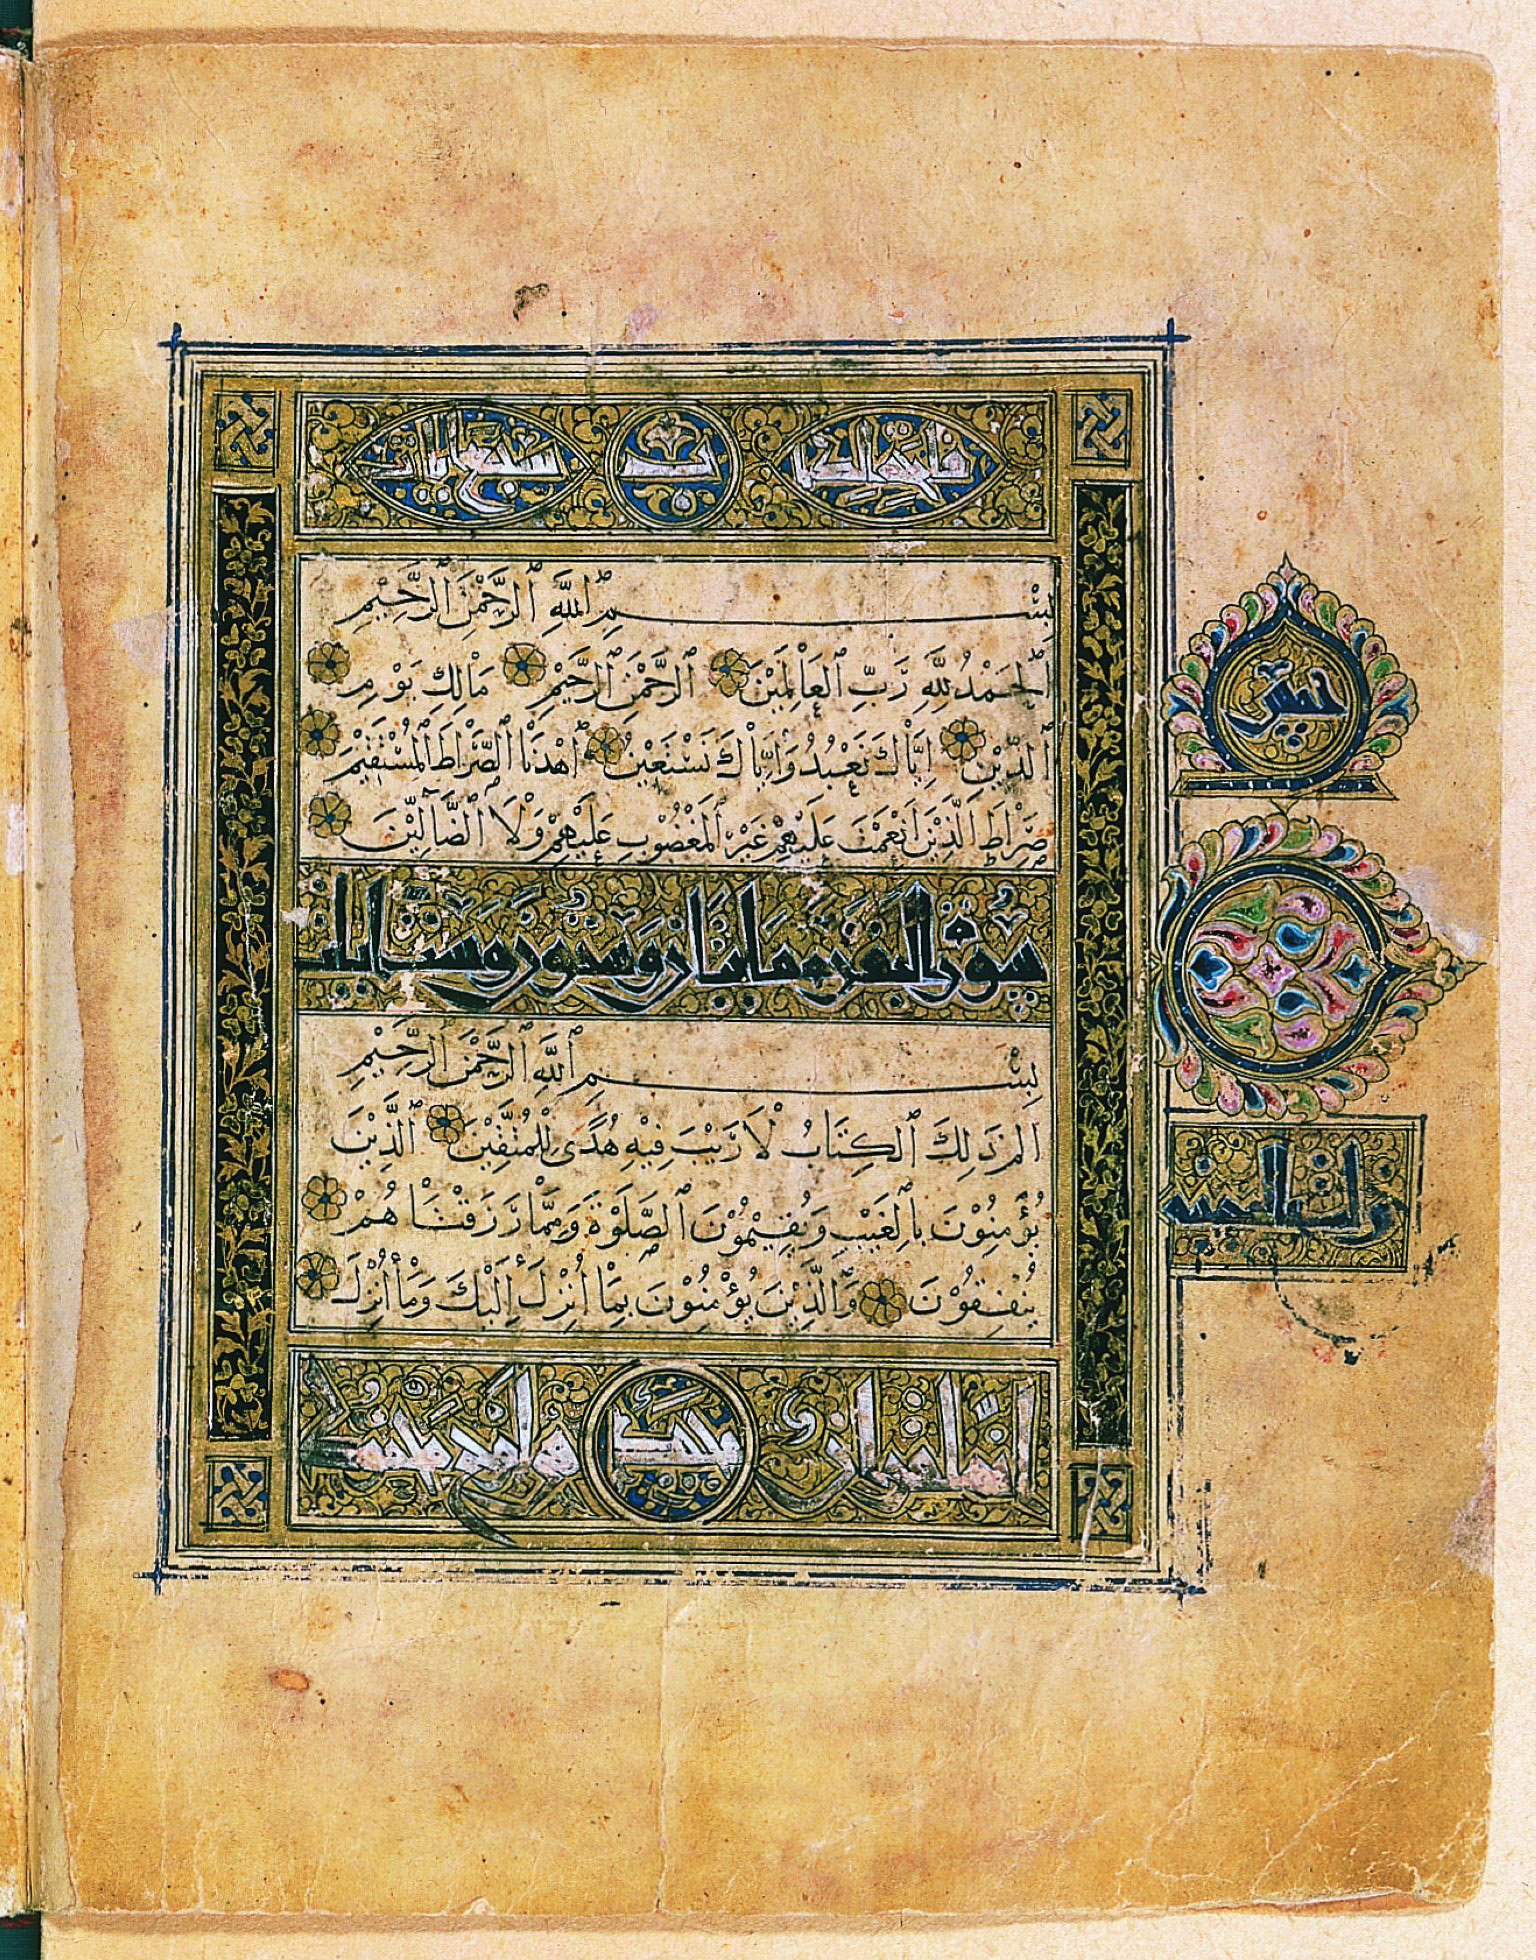 فاتحة الكتاب سبع آيات
بِسْمِ ٱللَّهِ ٱلرَّحْمٰنِ ٱلرَّحِيْمِ
ٱلْحَمْدُ لِلَّهِ رَبِّ ٱلْعَالَمِيْنَ ٱلرَّحْمٰنِ ٱلرَّحِيْمِ مَالِكِ يَوْمِ
ٱلدِّيْنِ اِيَّاكَ نَعْبُدُ وَاِيَّاكَ نَسْتَعِيْنُ اِهْدِنَا ٱلصِّرَاطَ ٱلْمُسْتَقِيْمَ
صِرَاطَ ٱلَّذِيْنَ اَنْعَمْتَ عَلَيْهِمْ غَيْرِ ٱلْمَغْضُوْبِ عَلَيْهِمْ وَلَا ٱلضَّآلِّيْنَ
سورة البقرة مايتان وست وثمانون
بِسْمِ ٱللَّهِ ٱلرَّحْمٰنِ ٱلرَّحِيْمِ
الم ذَلِكَ ٱلْكِتَابُ لَا رَيْبَ فِيْهِ هُدًى لِلْمُتَّقِيْنَ ٱلَّذِيْنَ
يُؤْمِنُوْنَ بِٱلْغَيْبِ وَيُقِيْمُوْنَ ٱلصَّلَوٰةَ وَمِمَّا رَزَقْنَاهُمْ
يُنْفِقُوْنَ وَٱلَّذِيْنَ يُؤْمِنُوْنَ بِمَا اُنْزِلَ اِلَيْكَ وَمَا اُنْزِلَ